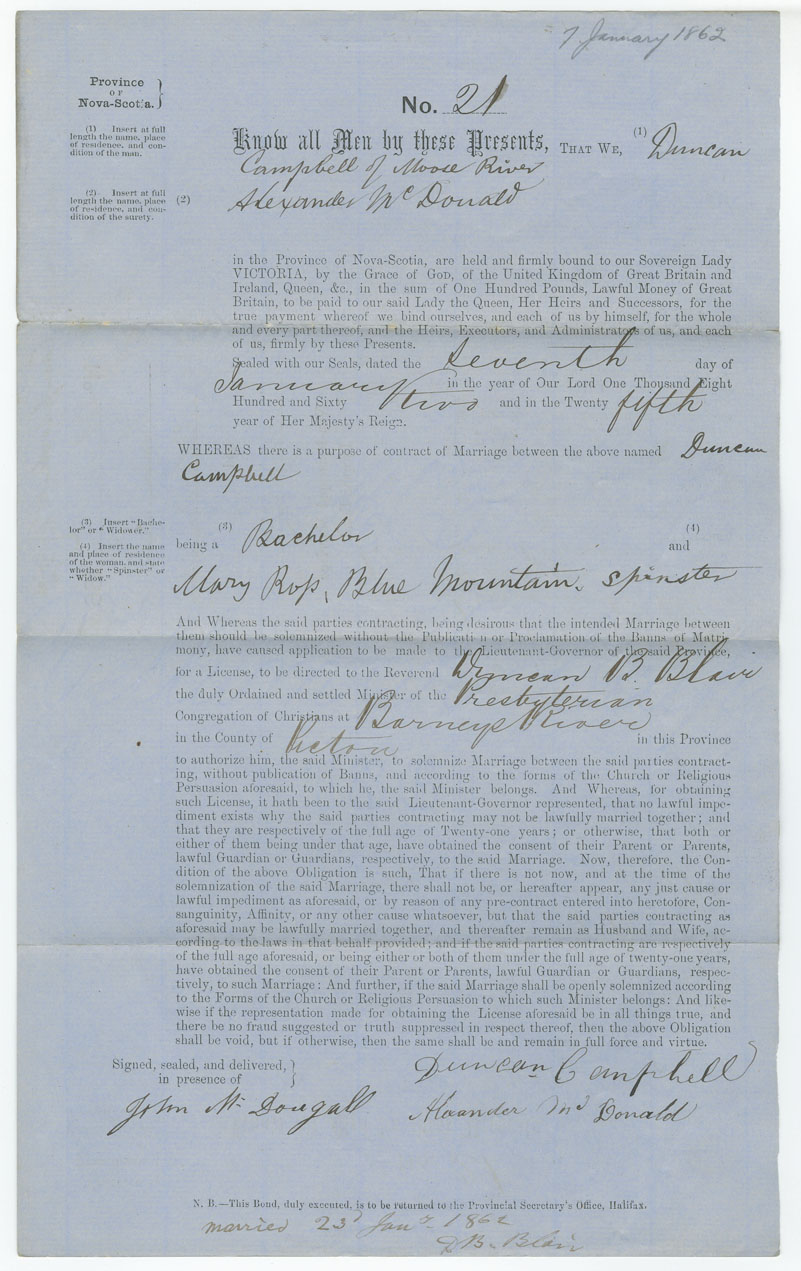 7 January 1862
Province
OF
Nova-Scotia.
No. 21
(1) Insert at full
length the name, place
of residence, and con-
dition of the man.
Know all Men by these Presents, THAT WE, (1) Duncan
Campbell of Moose River
(2) Insert at full
length the name, place
of residence, and con-
dition of the surety.
(2) Alexander McDonald
in the Province of Nova-Scotia, are held and firmly bound to our Sovereign Lady
VICTORIA, by the Grace of GOD, of the United Kingdom of Great Britain and
Ireland, Queen, &c., in the sum of One Hundred Pounds, Lawful Money of Great
Britain, to be paid to our said Lady the Queen, Her Heirs and Successors, for the
true payment whereof we bind ourselves, and each of us by himself, for the whole
and every part thereof, and the Heirs, Executors, and Administrators of us, and each
of us, firmly by these Presents.
Sealed with our Seals, dated the seventh day of
January in the year of Our Lord One Thousand Eight
Hundred and Sixty two and in the Twenty fifth
year of Her Majesty's Reign.
WHEREAS there is a purpose of contract of Marriage between the above named Duncan
Campbell
(3) Insert "Bache-
lor" or "Widower."
being a (3) Bachelor (4) and
(4) Insert the name
and place of residence
of the woman, and state
whether "Spinster" or
"Widow."
Mary Ross, Blue Mountain, spinster
And Whereas the said parties contracting, being desirous that the intended Marriage between
them should be solemnized without the Publication or Proclamation of the Banns of Matri-
mony, have caused application to be made to the Lieutenant-Governor of the said Province,
for a License, to be directed to the Reverend Duncan B. Blair
the duly Ordained and settled Minister of the Presbyterian
Congregation of Christians at Barneys River
in the County of Pictou in this Province
to authorize him, the said Minister, to solemnize Marriage between the said parties contract-
ing, without publication of Banns, and according to the forms of the Church or Religious
Persuasion aforesaid, to which he, the said Minister belongs. And Whereas, for obtaining
such License, it hath been to the said Lieutenant-Governor represented, that no lawful impe-
diment exists why the said parties contracting may not be lawfully married together; and
that they are respectively of the full age of Twenty-one years; or otherwise, that both or
either of them being under that age, have obtained the consent of their Parent or Parents,
lawful Guardian or Guardians, respectively, to the said Marriage. Now, therefore, the Con-
dition of the above Obligation is such, That if there is not now, and at the time of the
solemnization of the said Marriage, there shall not be, or hereafter appear, any just cause or
lawful impediment as aforesaid, or by reason of any pre-contract entered into heretofore, Con-
sanguinity, Affinity, or any other cause whatsoever, but that the said parties contracting as
aforesaid may be lawfully married together, and thereafter remain as Husband and Wife, ac-
cording to the laws in that behalf provided; and if the said parties contracting are respectively
of the full age aforesaid, or being either or both of them under the full age of twenty-one years,
have obtained the consent of their Parent or Parents, lawful Guardian or Guardians, respec-
tively, to such Marriage: And further, if the said Marriage shall be openly solemnized according
to the Forms of the Church or Religious Persuasion to which such Minister belongs: And like-
wise if the representation made for obtaining the License aforesaid be in all things true, and
there be no fraud suggested or truth suppressed in respect thereof, then the above Obligation
shall be void, but if otherwise, then the same shall be and remain in full force and virtue.
Signed, sealed, and delivered,
in presence of
Duncan Campbell
John McDougall
Alexander McDonald
N. B.—This Bond, duly executed, is to be returned to the Provincial Secretary's Office, Halifax.
married 23d Jany. 1862
D. B. Blair